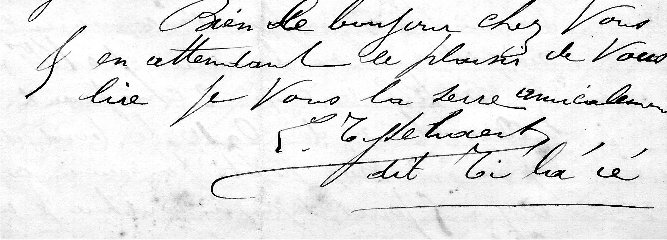 Bien le bonjour chez Vous
& en attendant le plaisir de Vous
lire je Vous la serre amicalement
dit